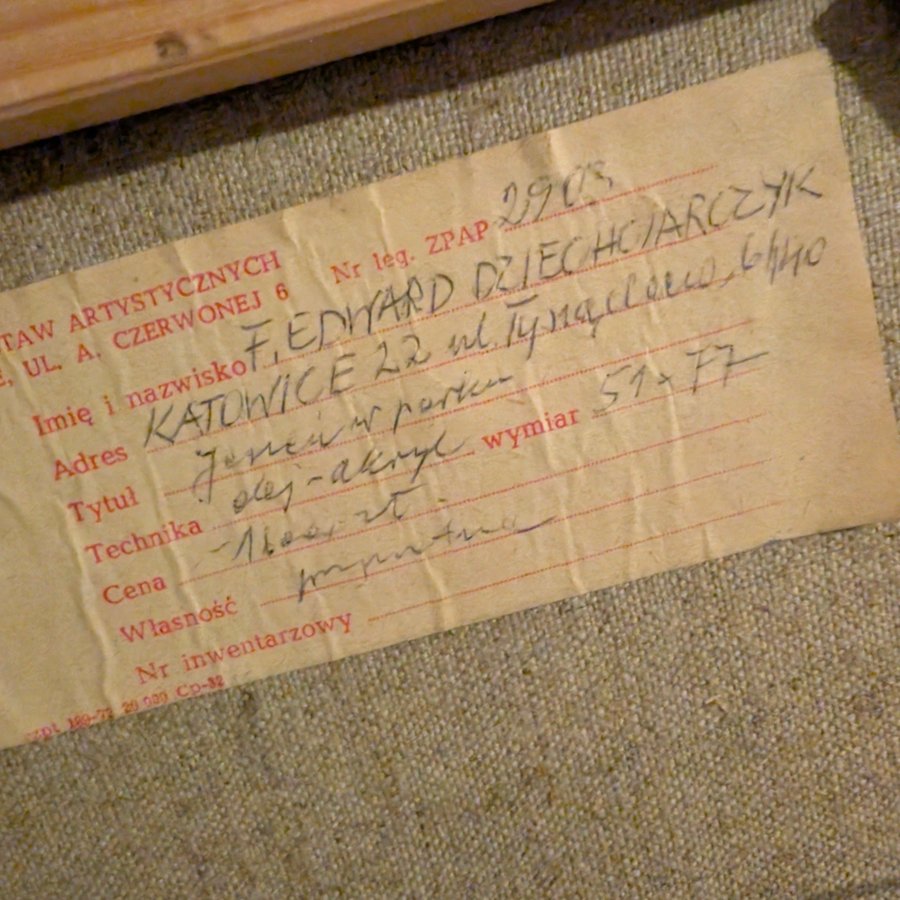 TAW ARTYSTYCZNYCH
UL. A. CZERWONEJ 6 Nr leg. ZPAP 2903
Imię i nazwisko F. EDWARD DZIECHCIARCZYK
Adres KATOWICE 22 ul. 6/40
Tytuł w parku
Technika olej-akryl wymiar 51 x 77
Cena zł.
Własność
Nr inwentarzowy